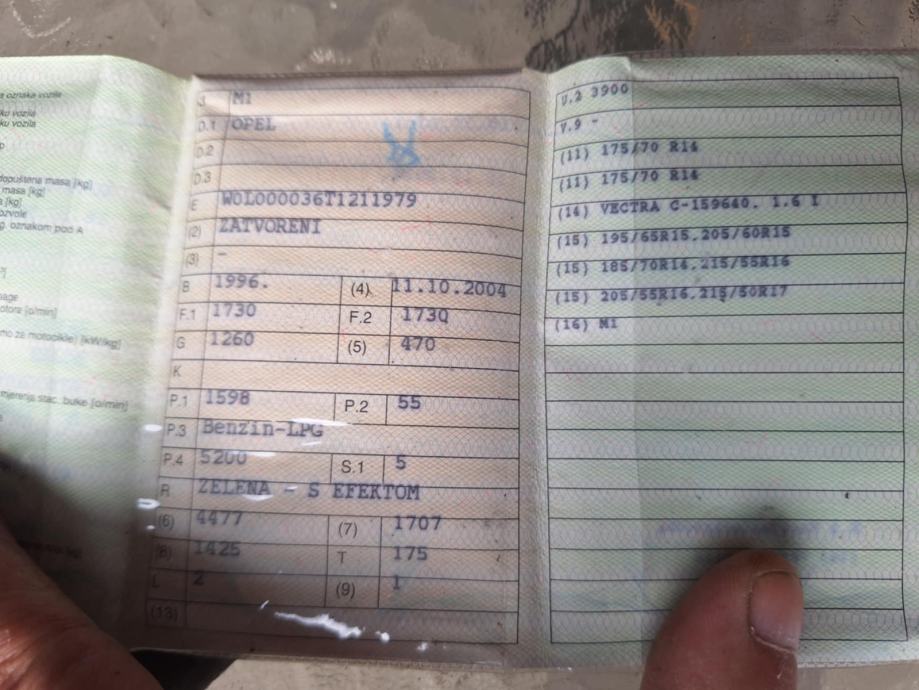 oznaka vozila
ku vozila
ku vozila
dopuštena masa [kg]
masa [kg]
[kg]
ozvole
g. oznakom pod A
nage
otora [o/min]
mo za motocikle) [kW/kg]
mjerenja stac. buke [o/min]
J M1
D.1 OPEL
D.2
D.3
E W0L000036T1211979
(2) ZATVORENI
(3) -
B 1996. (4) 11.10.2004
F.1 1730 F.2 1730
G 1260 (5) 470
K
P.1 1598 P.2 55
P.3 Benzin-LPG
P.4 5200 S.1 5
R ZELENA - S EFEKTOM
(6) 4477 (7) 1707
(8) 1425 T 175
L 2 (9) 1
(13)
V.2 3900
V.9 -
(11) 175/70 R14
(11) 175/70 R14
(14) VECTRA C-159640. 1.6 I
(15) 195/65R15,205/60R15
(15) 185/70R14,215/55R16
(15) 205/55R16,215/50R17
(16) M1